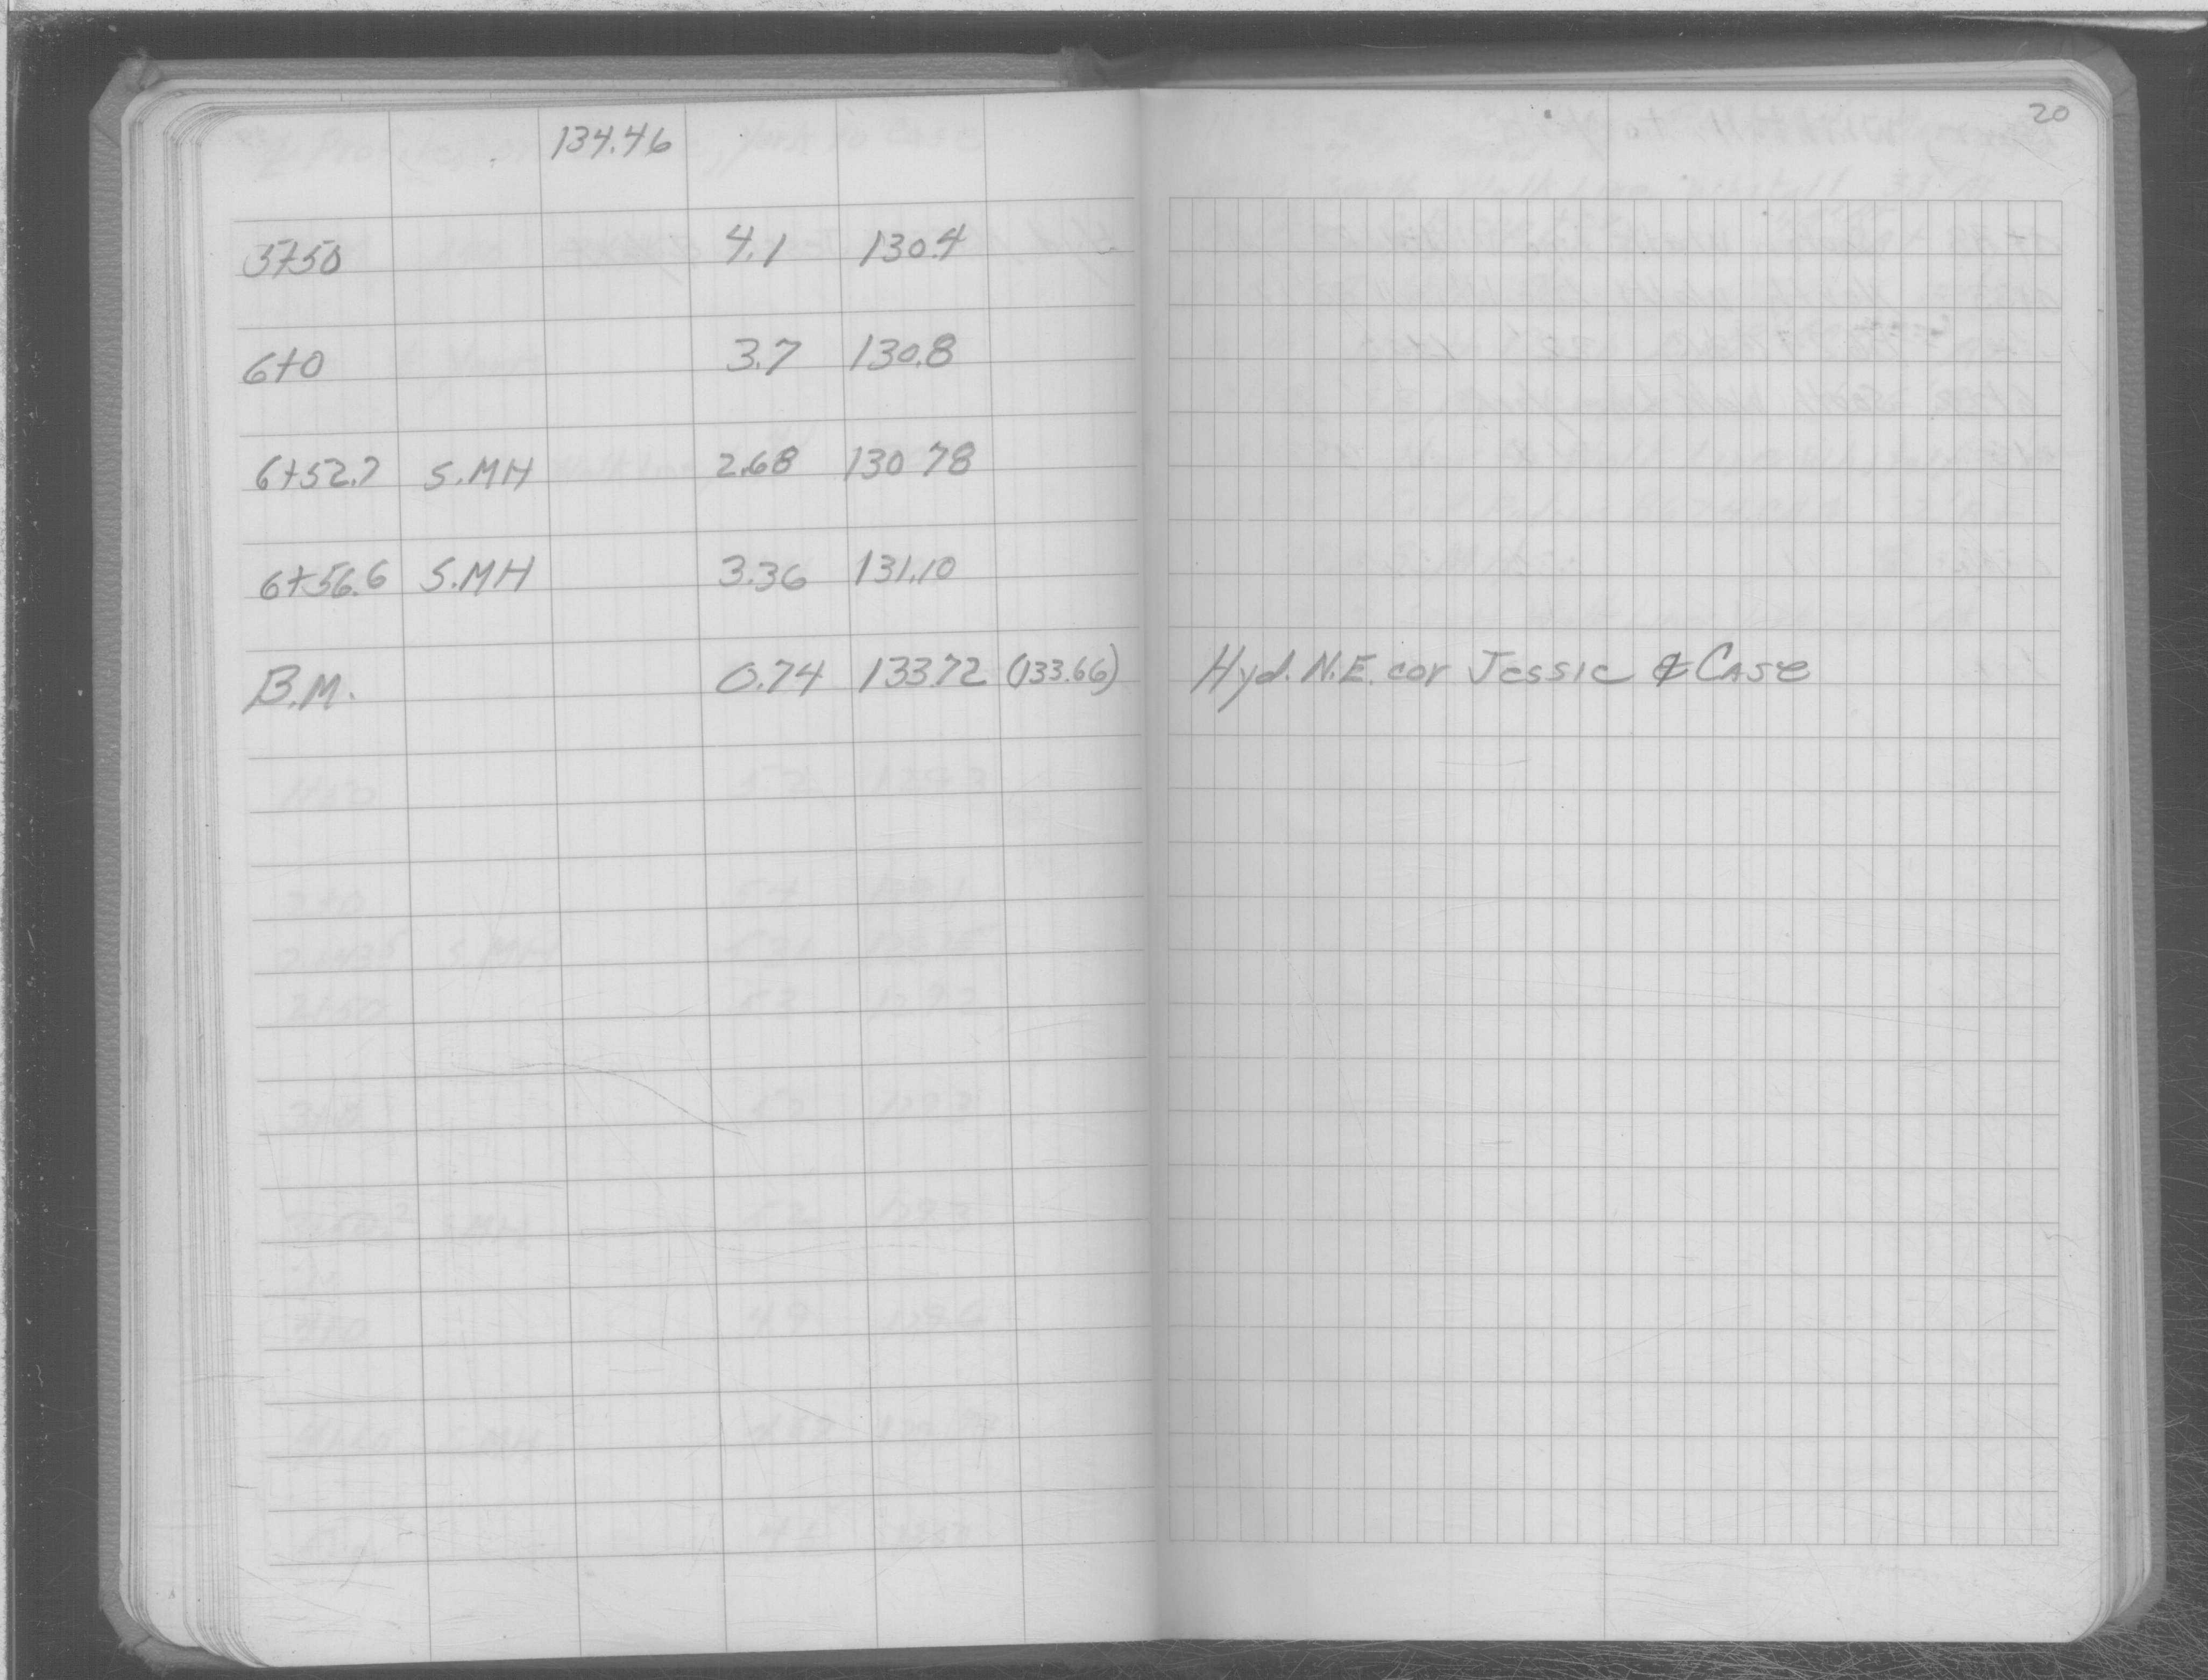 20
134.46
5+50 4.1 130.4
6+0 3.7 130.8
6+52.7 S.MH 2.68 130 78
6+56.6 S.MH 3.36 131.10
B.M. 0.74 133.72 (133.66) Hyd. N.E. cor Jessie & Case